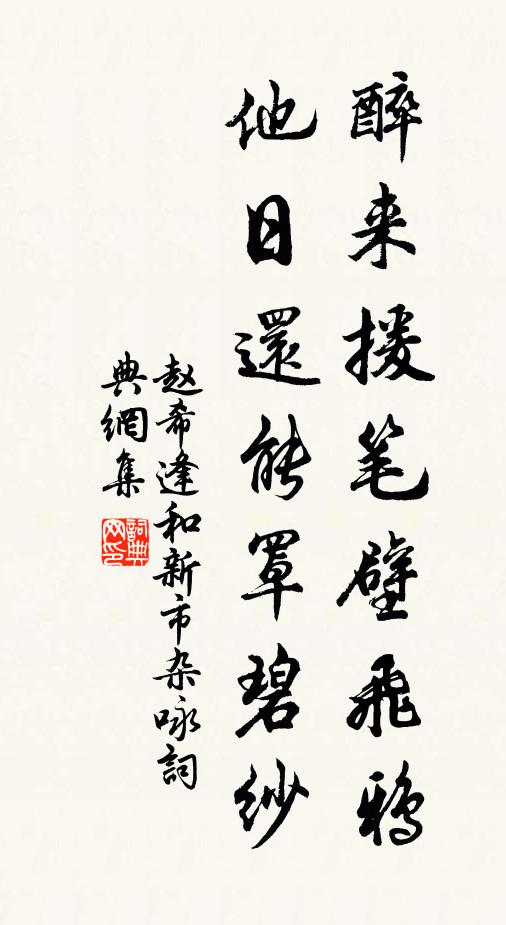 醉来援笔壁飛鸦
他日還能罩碧纱
赵希逢和新市杂咏詞
典網集
詞典网印